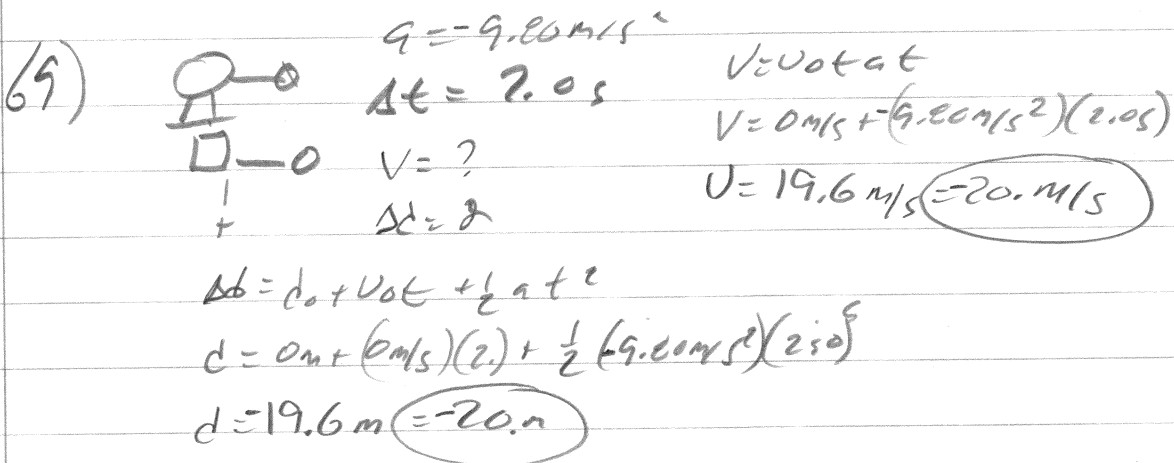 69)
a = -9.80 m/s²
Δt = 2.0 s
V = ?
Δd = ?
V = V0 + at
V = 0 m/s + -(9.80 m/s²)(2.0s)
V = 19.6 m/s = -20. m/s
Δd = d0 + V0t + ½ at²
d = 0m + (0m/s)(2.) + ½ (-9.80 m/s²)(2.0)
d = -19.6 m = -20. m